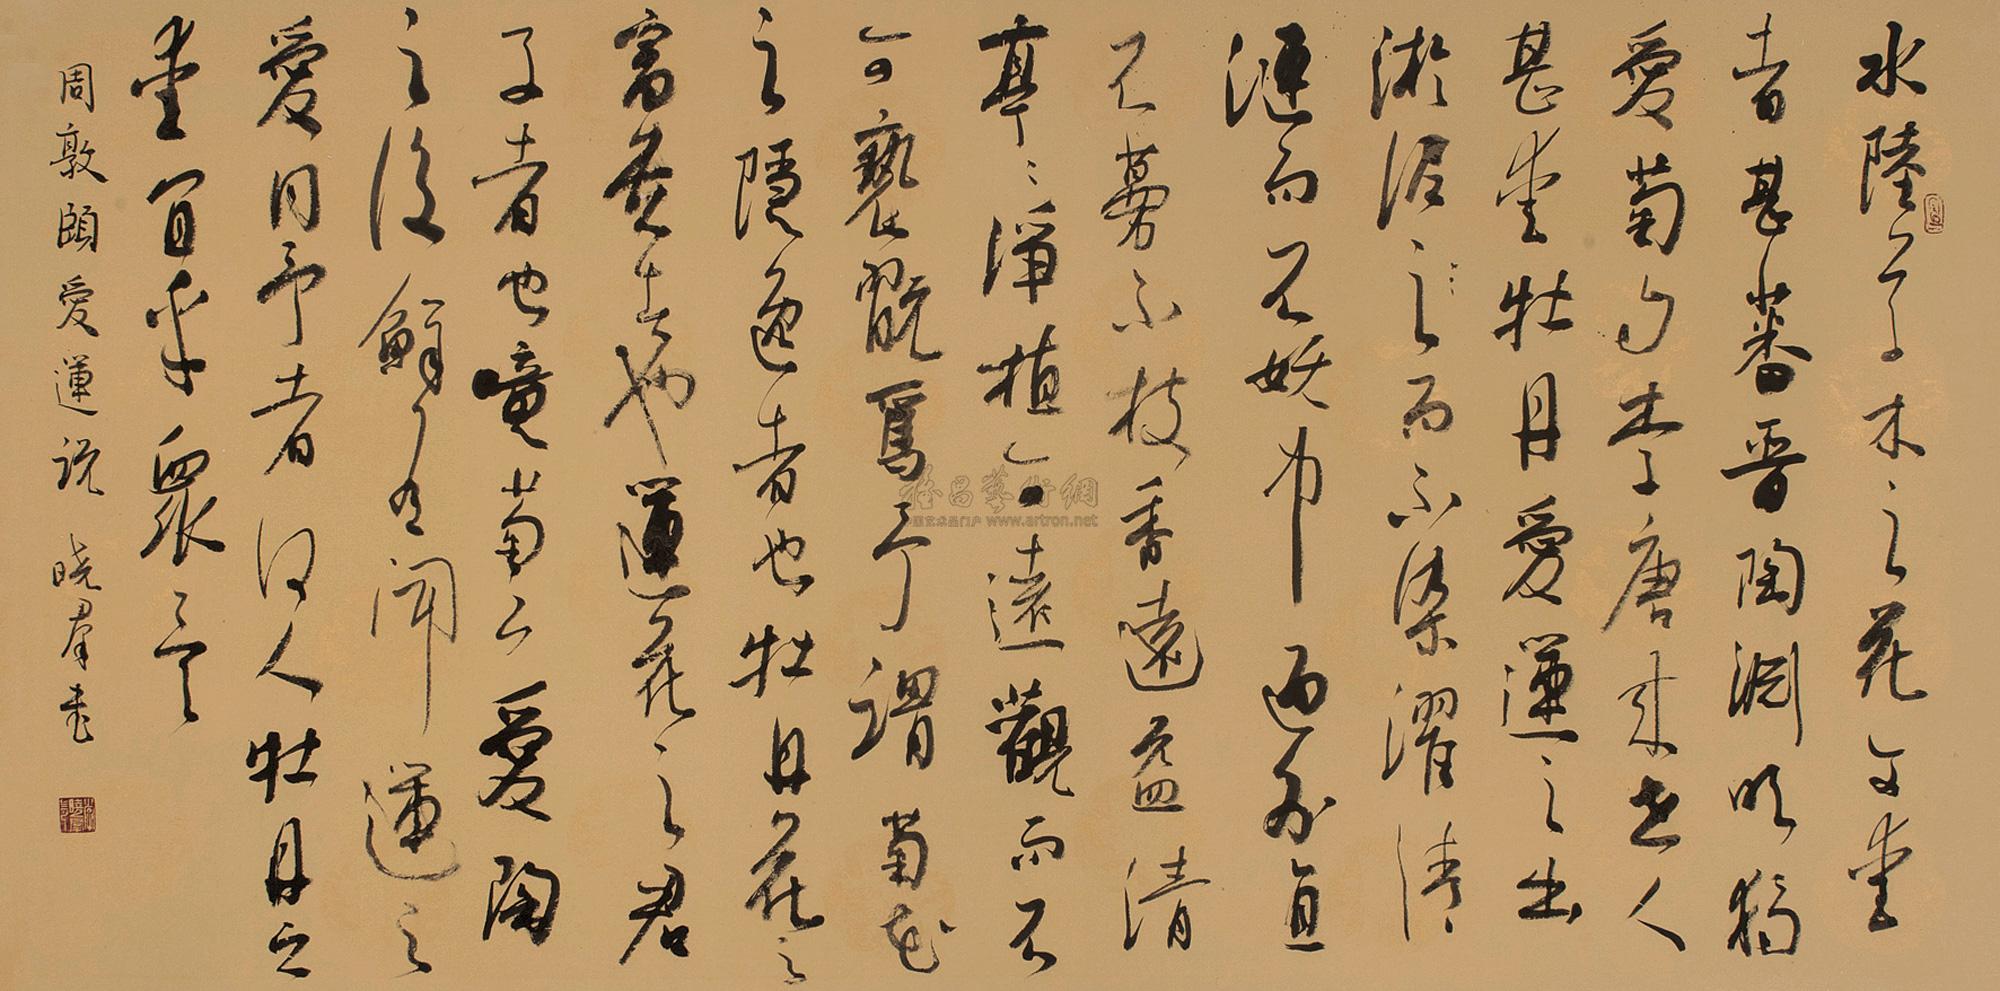 水陸草木之花可愛
者甚蕃晉陶淵明獨
愛菊自李唐來世人
甚愛牡丹愛蓮之出
淤泥之而不染濯清
漣而不妖中通外直
不蔓不枝香遠益清
亭〻淨植可遠觀而不
可褻翫焉予謂菊花
之隱逸者也牡丹花之
富貴者也蓮花之君
子者也噫菊之愛陶
之後鮮有聞蓮之
愛同予者何人牡丹之
愛宜乎眾矣
周敦頤愛蓮說 曉群書
雅昌藝術網
中国艺术品门户 www.artron.net